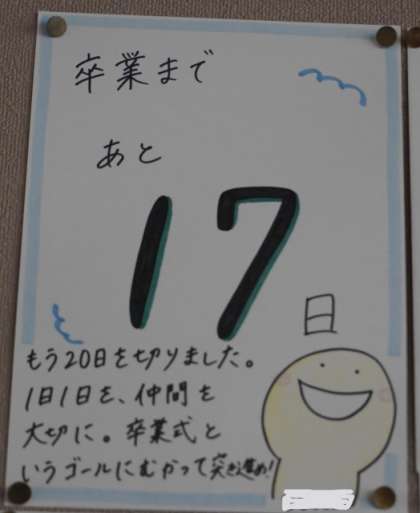 卒業まで
あと
17
日
もう20日を切りました。
1日1日を、仲間を
大切に。卒業式と
いうゴールにむかって突き進め!